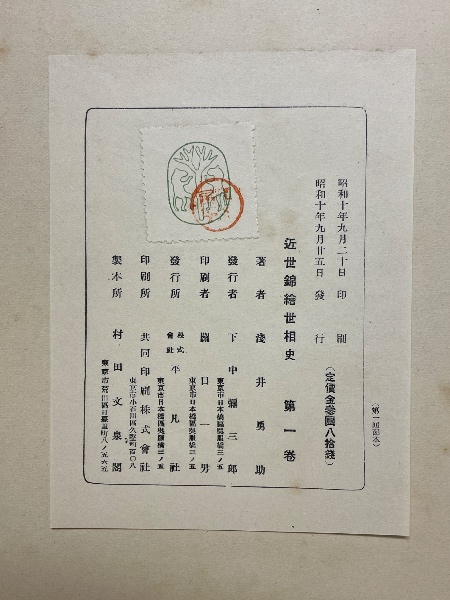 (第一回配本)
昭和十年九月二十日 印刷
昭和十年九月廿五日 發行
(定價金參圓八拾錢)
近世錦繪世相史 第一卷
著者 淺井勇助
發行者 下中彌三郎
東京市日本橋區吳服橋三ノ五
印刷者 日一男
東京市日本橋區吳服橋三ノ五
發行所 株式會社 平凡社
東京市日本橋區吳服橋三ノ五
印刷所 共同印刷株式會社
東京市小石川區久堅町百〇八
製本所 村田文泉閣
東京市荒川區日暮里町八ノ五六五